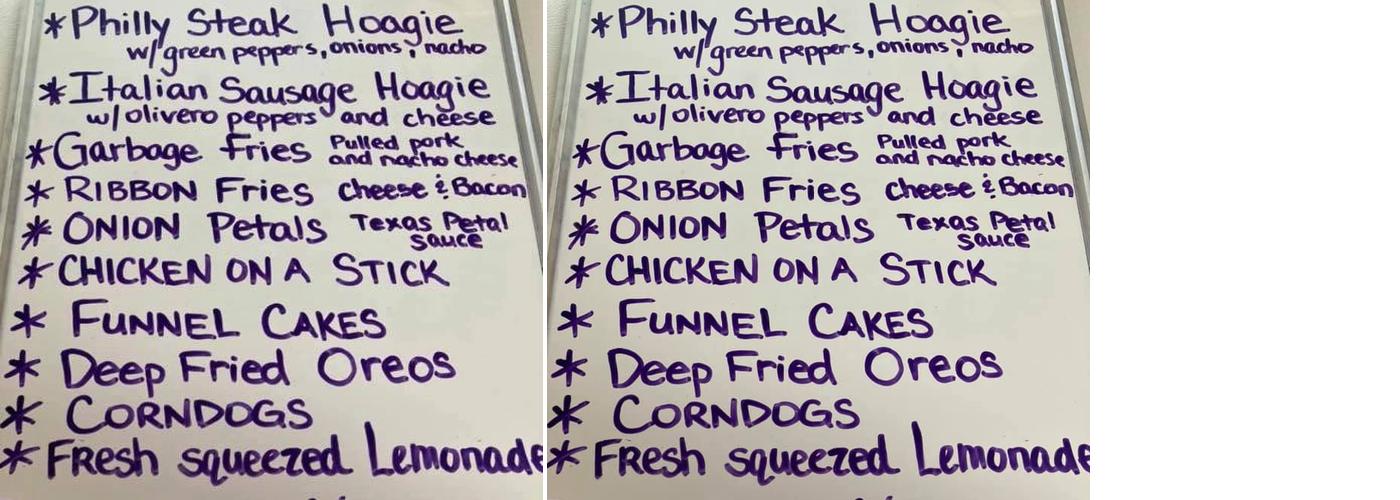 *Philly Steak Hoagie
w/green peppers, onions, nacho
*Italian Sausage Hoagie
w/olivero peppers and cheese
*Garbage Fries Pulled pork
and nacho cheese
* RIBBON Fries cheese & Bacon
* ONION Petals Texas Petal
sauce
* CHICKEN ON A STICK
* FUNNEL CAKES
* Deep Fried Oreos
* CORNDOGS
* FResh squeezed Lemonade
*Philly Steak Hoagie
w/green peppers, onions, nacho
*Italian Sausage Hoagie
w/olivero peppers and cheese
*Garbage Fries Pulled pork
and nacho cheese
* RIBBON Fries cheese & Bacon
* ONION Petals Texas Petal
sauce
* CHICKEN ON A STICK
* FUNNEL CAKES
* Deep Fried Oreos
* CORNDOGS
* FResh squeezed Lemonade